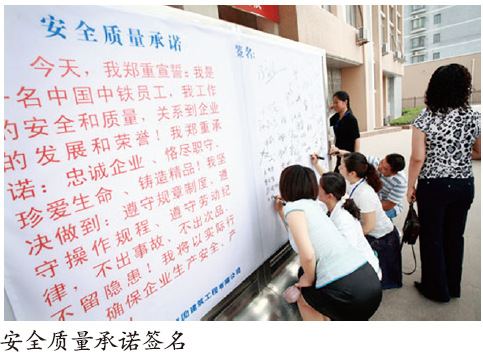 安全质量承诺
签名:
今天,我郑重宣誓:我是
一名中国中铁员工,我工作
的安全和质量,关系到企业
的发展和荣誉!我郑重承
诺:忠诚企业、恪尽职守、
珍爱生命、铸造精品!我坚
决做到:遵守规章制度、遵
守操作规程、遵守劳动纪
律,不出事故、不出次品、
不留隐患!我将以实际行
确保企业生产安全、产
建筑工程有限公司
安全质量承诺签名